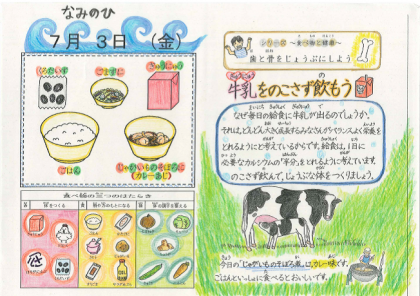 なみのひ
7月 3日 (金)
くろだいず
ごまずに
ぎゅうにゅう
ごはん
じゃがいものそぼろに
(カレーあじ)
食べ物の三つのはたらき
シリーズ ～食べ物と健康～
歯と骨をじょうぶにしよう
牛乳をのこさず飲もう
なぜ毎日の給食に牛乳が出るのでしょうか。
それは、どんどん大きく成長するみなさんが、バランスよく栄養を
とれるようにと考えているからです。給食は、1日に
必要なカルシウムの「半分」をとれるように考えています。
のこさず飲んで、じょうぶな体をつくりましょう。
今日の「じゃがいものそぼろ煮」は、カレー味です。
ごはんといっしょに食べるとおいしいです。